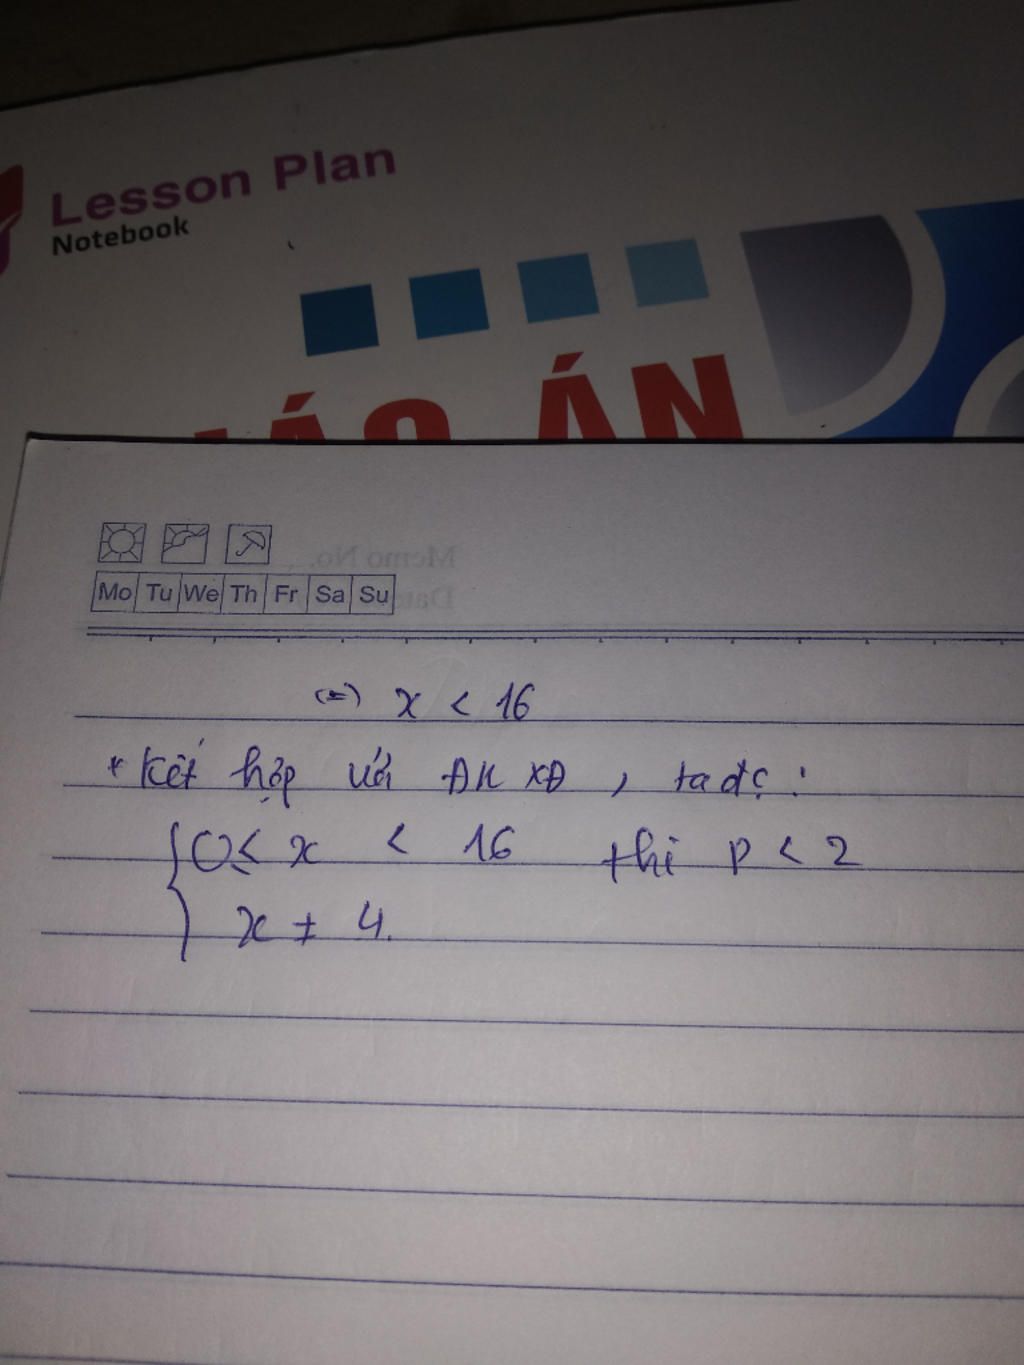 Lesson Plan
Notebook
ÁO ÁN
Memo No.
Mo Tu We Th Fr Sa Su
(=) x < 16
* Kết hợp với ĐKXĐ, ta đc:
{ 0 ≤ x < 16 thì P < 2
x ≠ 4.